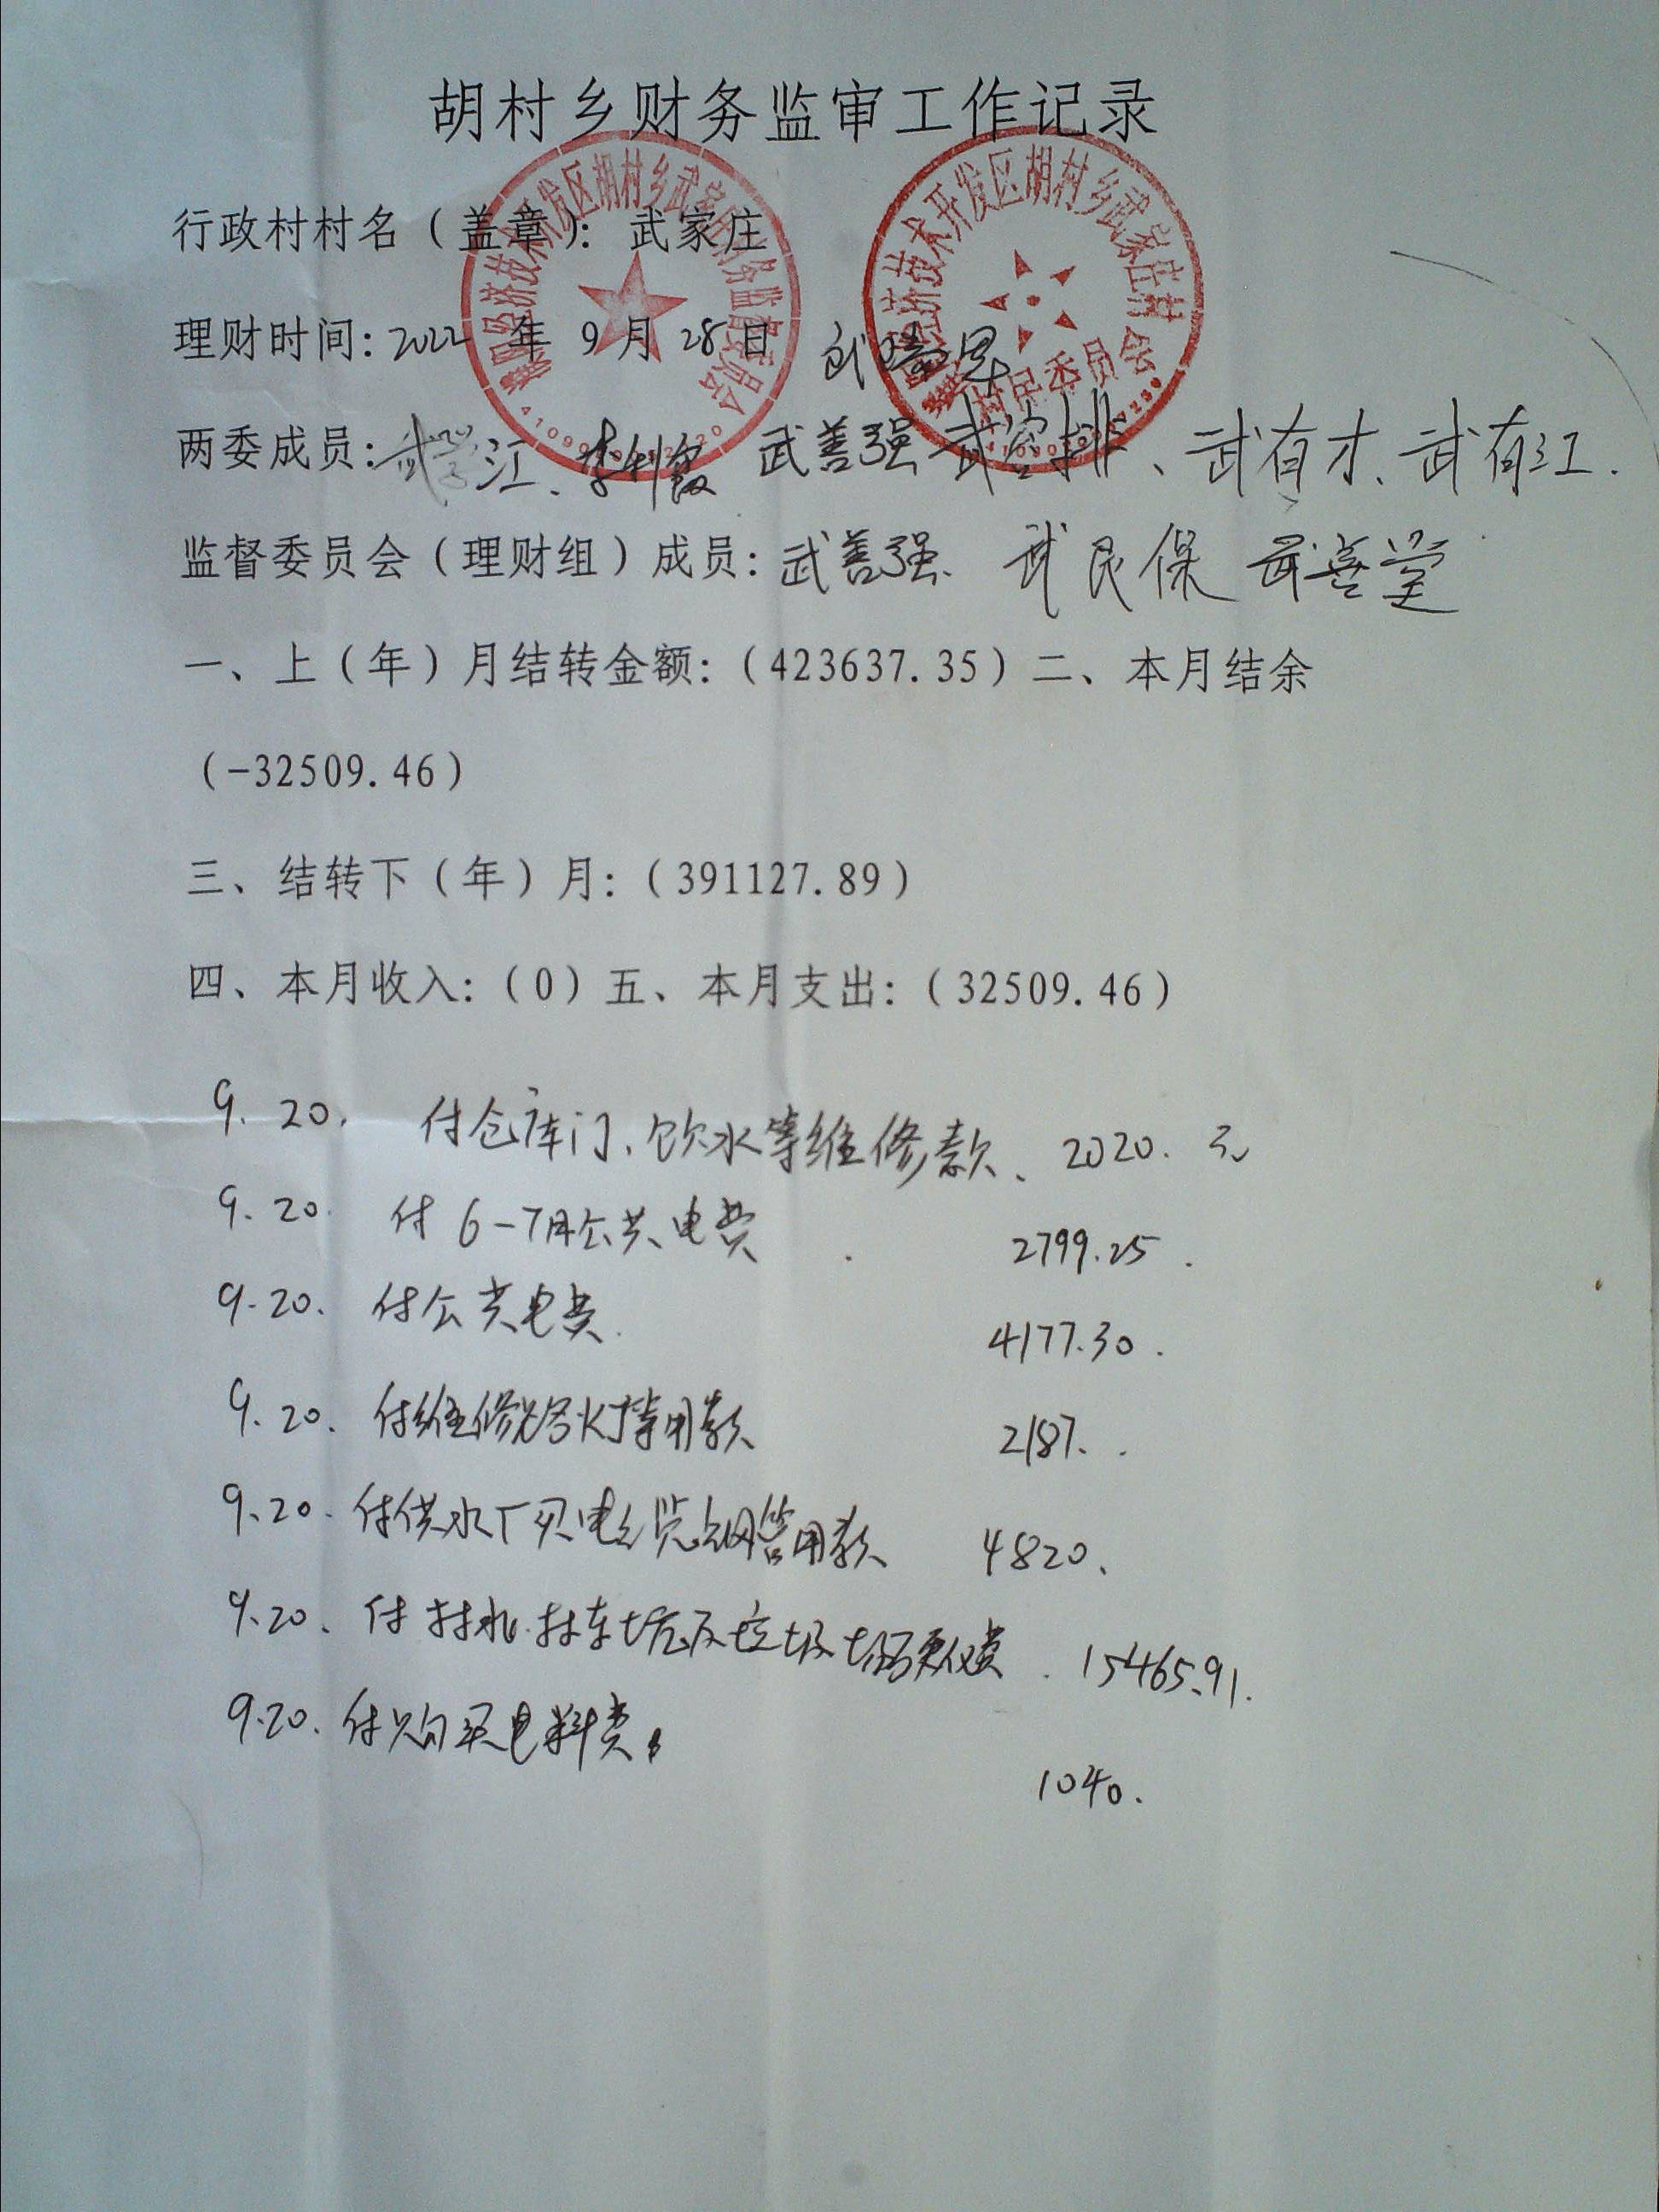 胡村乡财务监审工作记录
行政村村名（盖章）：武家庄
理财时间：2022年9月28日 武瑞思
两委成员：武学江、李利敏 武善强 武官排、武有才、武有江.
监督委员会（理财组）成员：武善强、武良保 武喜堂
一、上（年）月结转金额：（423637.35）二、本月结余
（-32509.46）
三、结转下（年）月：（391127.89）
四、本月收入：（0）五、本月支出：（32509.46）
9.20. 付仓库门、饮水等维修款、2020.元
9.20. 付6-7月公共电费 2799.25.
9.20. 付公共电费. 4177.30.
9.20. 付维修路灯等用款 2187.
9.20. 付供水厂买电缆钢管用款 4820、
9.20、付村北.村东坑及垃圾场费 . 15465.91.
9.20. 付购买电料费. 1040.
经济技术开发区胡村乡武家庄村务监督委员会
经济技术开发区胡村乡武家庄村村民委员会